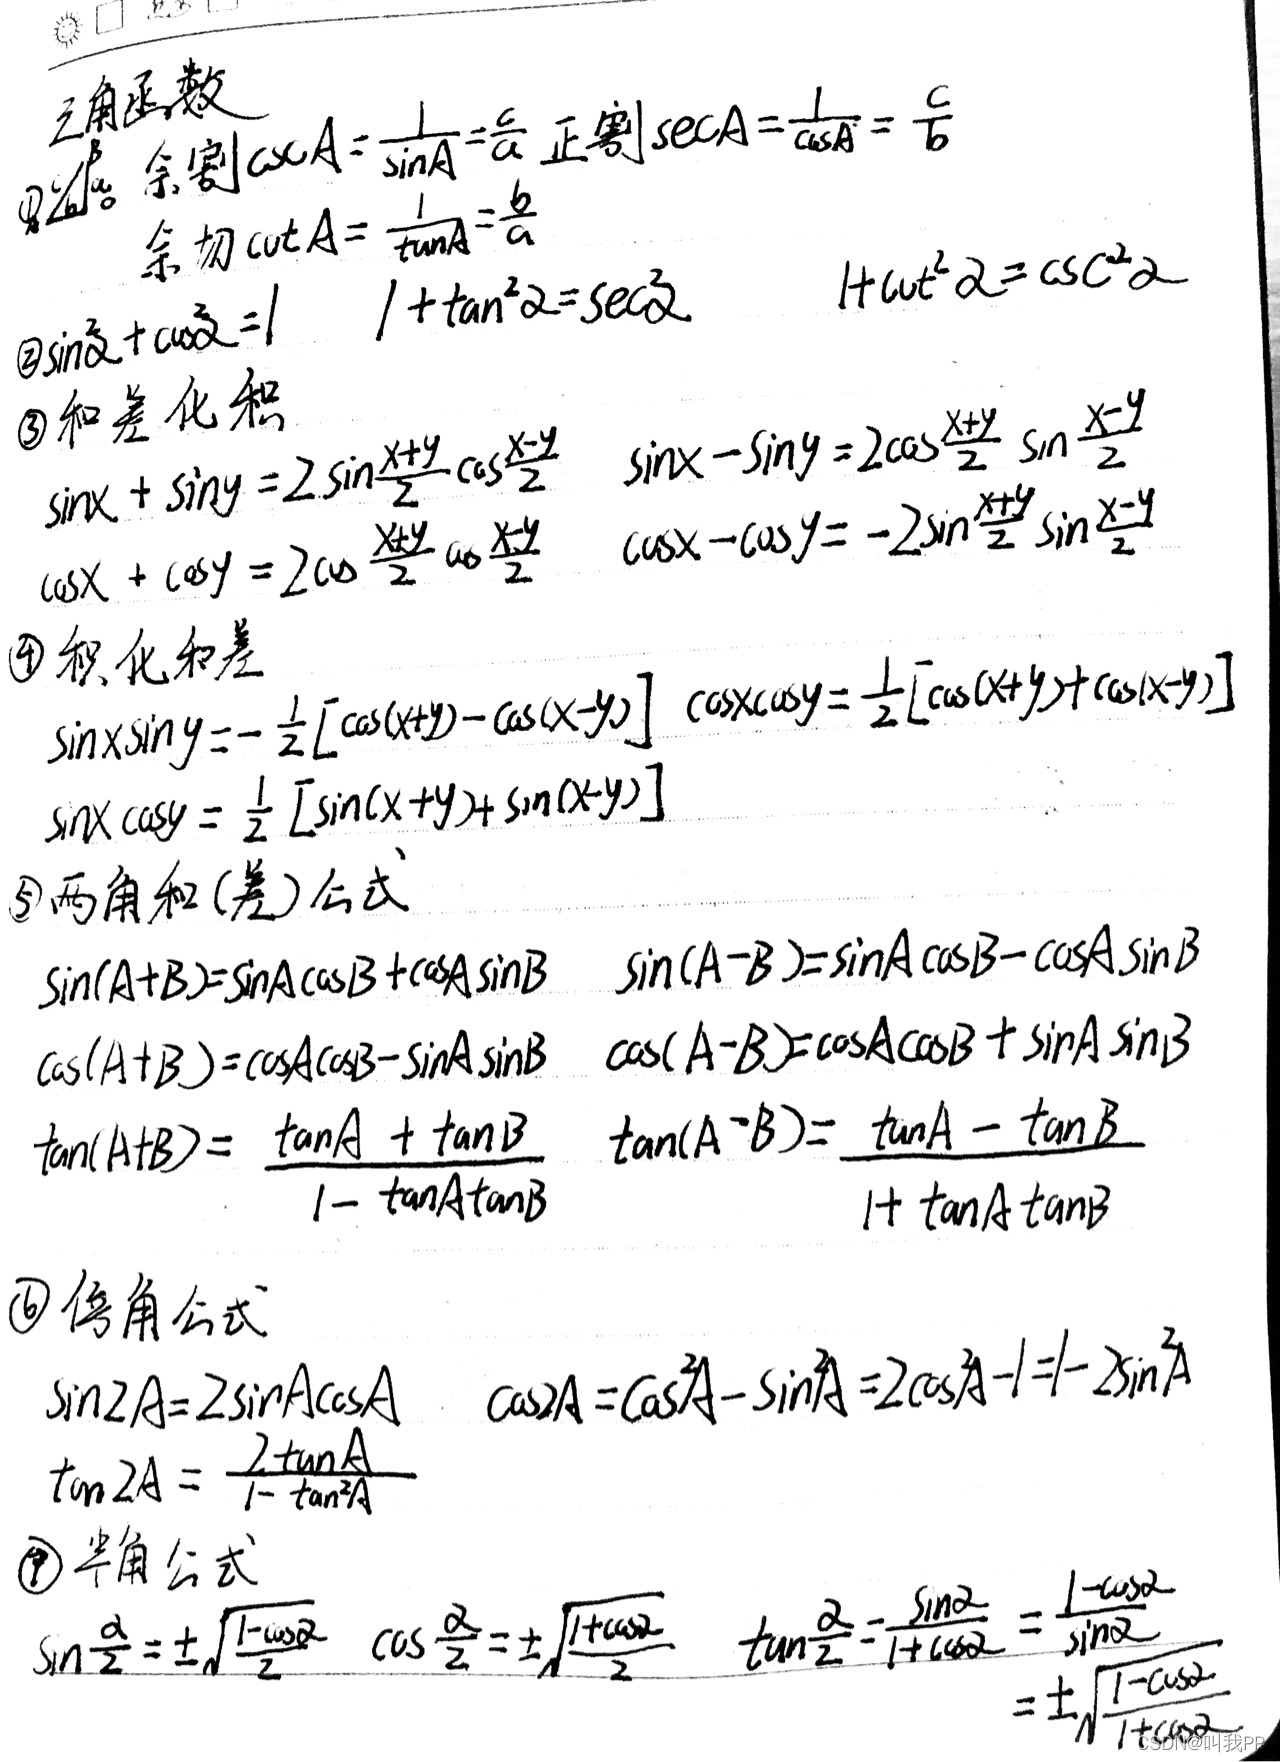 三角函数
① 余割cscA=1/sinA=c/a 正割secA=1/cosA=c/b
余切cotA=1/tanA=b/a
②sin²α+cos²α=1 1+tan²α=sec²α 1+cot²α=csc²α
③和差化积
sinx+siny=2sin(x+y)/2 cos(x-y)/2 sinx-siny=2cos(x+y)/2 sin(x-y)/2
cosx+cosy=2cos(x+y)/2 cos(x-y)/2 cosx-cosy=-2sin(x+y)/2 sin(x-y)/2
④积化和差
sinxsiny=-1/2[cos(x+y)-cos(x-y)] cosxcosy=1/2[cos(x+y)+cos(x-y)]
sinxcosy=1/2[sin(x+y)+sin(x-y)]
⑤两角和(差)公式
sin(A+B)=sinAcosB+cosAsinB sin(A-B)=sinAcosB-cosAsinB
cos(A+B)=cosAcosB-sinAsinB cos(A-B)=cosAcosB+sinAsinB
tan(A+B)=(tanA+tanB)/(1-tanAtanB) tan(A-B)=(tanA-tanB)/(1+tanAtanB)
⑥倍角公式
sin2A=2sinAcosA cos2A=cos²A-sin²A=2cos²A-1=1-2sin²A
tan2A=2tanA/(1-tan²A)
⑦半角公式
sinα/2=±√((1-cosα)/2) cosα/2=±√((1+cosα)/2) tanα/2=sinα/(1+cosα)=(1-cosα)/sinα
=±√((1-cosα)/(1+cosα))
CSDN@叫我PP